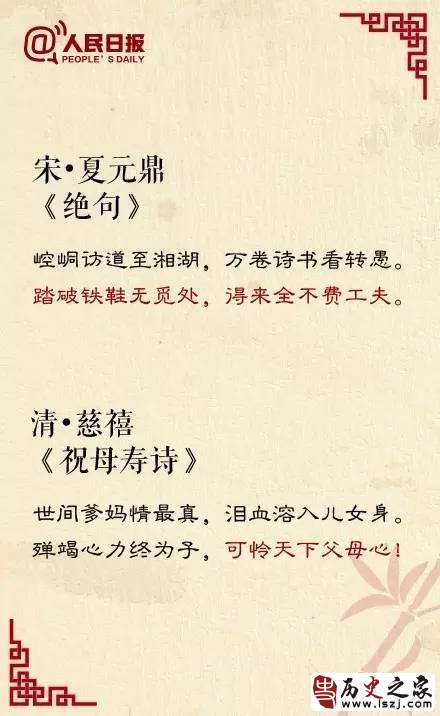 @人民日报
PEOPLE'S DAILY
宋·夏元鼎
《绝句》
崆峒访道至湘湖，万卷诗书看转愚。
踏破铁鞋无觅处，得来全不费工夫。
清·慈禧
《祝母寿诗》
世间爹妈情最真，泪血溶入儿女身。
殚竭心力终为子，可怜天下父母心！
历史之家
www.lszj.com